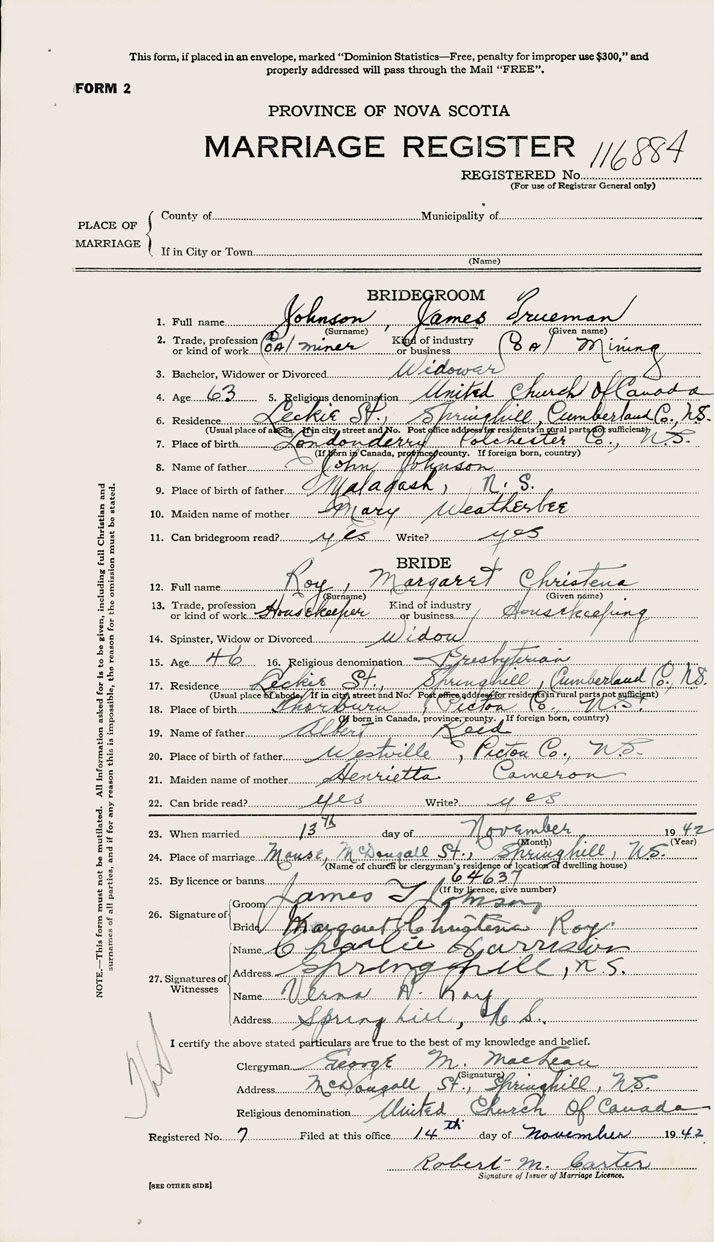 This form, if placed in an envelope, marked "Dominion Statistics—Free, penalty for improper use $300," and
properly addressed will pass through the Mail "FREE".
FORM 2
PROVINCE OF NOVA SCOTIA
MARRIAGE REGISTER 116884
REGISTERED No.
(For use of Registrar General only)
PLACE OF MARRIAGE
County of Municipality of
If in City or Town
(Name)
BRIDEGROOM
1. Full name Johnson, James Trueman
(Surname) (Given name)
2. Trade, profession or kind of work (Coal) miner Kind of industry or business (Coal) Mining
3. Bachelor, Widower or Divorced Widower
4. Age 63 5. Religious denomination United Church Of Canada
6. Residence Leckie St., Springhill, Cumberland Co., N.S.
(Usual place of abode. If in city, street and No. Post office address for residents in rural parts not sufficient)
7. Place of birth Londonderry Colchester Co., N.S.
(If born in Canada, province, county. If foreign born, country)
8. Name of father John Johnson
9. Place of birth of father Malagash, N.S.
10. Maiden name of mother Mary Weatherbee
11. Can bridegroom read? yes Write? yes
BRIDE
12. Full name Roy, Margaret Christena
(Surname) (Given name)
13. Trade, profession or kind of work Housekeeper Kind of industry or business Housekeeping
14. Spinster, Widow or Divorced Widow
15. Age 46 16. Religious denomination Presbyterian
17. Residence Leckie St., Springhill, Cumberland Co., N.S.
(Usual place of abode. If in city, street and No. Post office address for residents in rural parts not sufficient)
18. Place of birth Thorburn, Pictou Co., N.S.
(If born in Canada, province, county. If foreign born, country)
19. Name of father Albert Reid
20. Place of birth of father Westville, Pictou Co., N.S.
21. Maiden name of mother Henrietta Cameron
22. Can bride read? yes Write? yes
23. When married 13th day of November 1942
(Month) (Year)
24. Place of marriage Manse, McDougall St., Springhill, N.S.
(Name of church or clergyman's residence or location of dwelling house)
25. By licence or banns 64637
(If by licence, give number)
26. Signature of
Groom James T Johnson
Bride Margaret Christena Roy
27. Signatures of Witnesses
Name Charlie Harrison
Address Springhill, N.S.
Name Verna A. Roy
Address Springhill, N.S.
I certify the above stated particulars are true to the best of my knowledge and belief.
Clergyman George M. MacLean
(Signature)
Address McDougall St., Springhill, N.S.
Religious denomination United Church Of Canada
Registered No. 7 Filed at this office 14th day of November 1942
Robert M. Carter
Signature of Issuer of Marriage Licence.
[SEE OTHER SIDE]
NOTE.—This form must not be mutilated. All information asked for is to be given, including full Christian and
surnames of all parties, and if for any reason this is impossible, the reason for the omission must be stated.